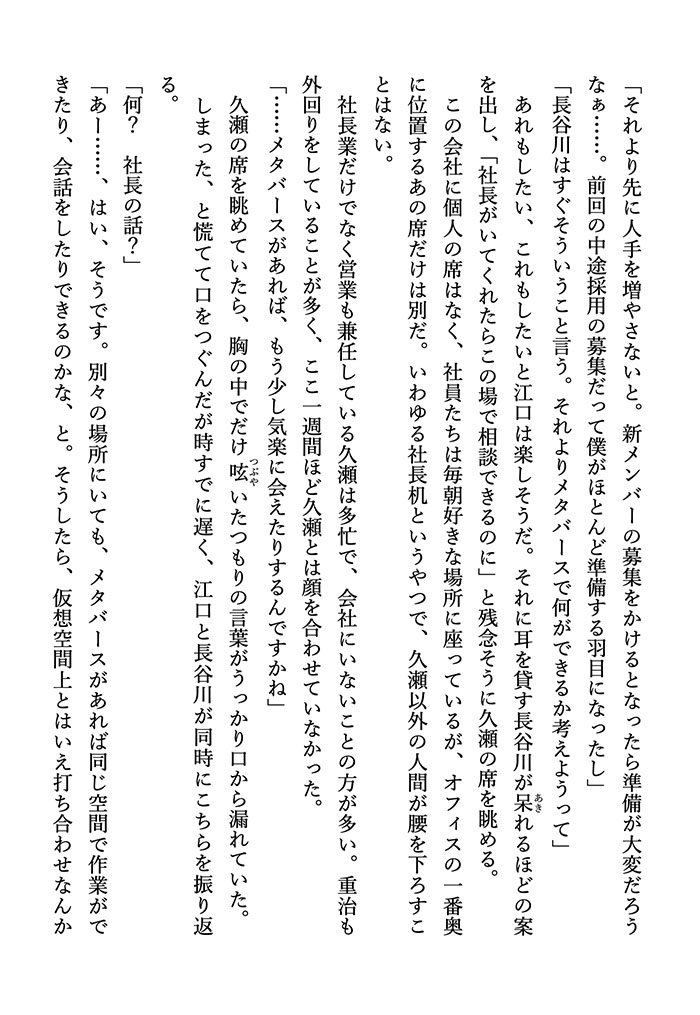 「それより先に人手を増やさないと。新メンバーの募集をかけるとなったら準備が大変だろう
なぁ……。前回の中途採用の募集だって僕がほとんど準備する羽目になったし」
「長谷川はすぐそういうこと言う。それよりメタバースで何ができるか考えようって」
あれもしたい、これもしたいと江口は楽しそうだ。それに耳を貸す長谷川が呆れるほどの案
を出し、「社長がいてくれたらこの場で相談できるのに」と残念そうに久瀬の席を眺める。
この会社に個人の席はなく、社員たちは毎朝好きな場所に座っているが、オフィスの一番奥
に位置するあの席だけは別だ。いわゆる社長机というやつで、久瀬以外の人間が腰を下ろすこ
とはない。
社長業だけでなく営業も兼任している久瀬は多忙で、会社にいないことの方が多い。重治も
外回りをしていることが多く、ここ一週間ほど久瀬とは顔を合わせていなかった。
「……メタバースがあれば、もう少し気楽に会えたりするんですかね」
久瀬の席を眺めていたら、胸の中でだけ呟いたつもりの言葉がうっかり口から漏れていた。
しまった、と慌てて口をつぐんだが時すでに遅く、江口と長谷川が同時にこちらを振り返
る。
「何？　社長の話？」
「あー……、はい、そうです。別々の場所にいても、メタバースがあれば同じ空間で作業がで
きたり、会話をしたりできるのかな、と。そうしたら、仮想空間上とはいえ打ち合わせなんか